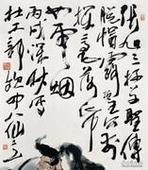 張旭三杯草聖傳
脱帽露頂王公前
揮毫落紙
如雲烟
丙 深秋寫
杜工部飲中八仙之一